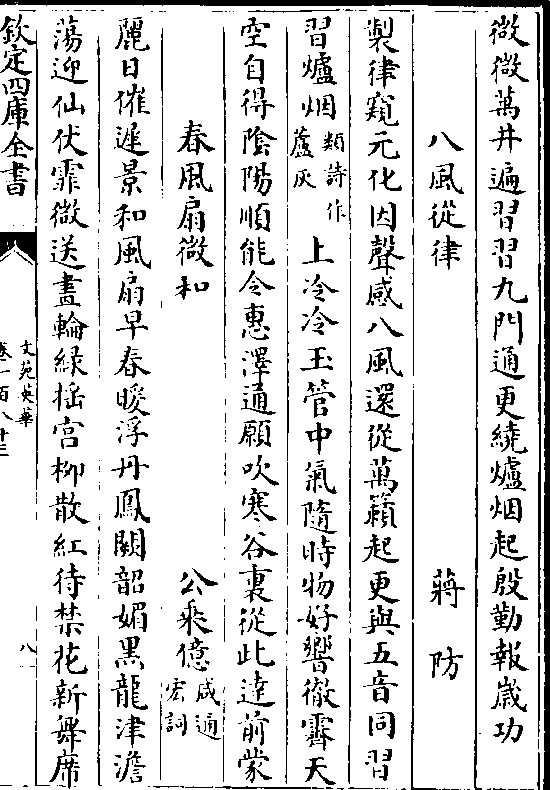 微微萬井遍習習九門通更繞爐烟起殷勤報嵗功
八風從律 蔣防
製律窺元化因聲感八風還從萬籟起更與五音同習
習爐烟類詩作蘆灰上泠泠玉管中氣隨時物好響徹霽天
空自得陰陽順能令惠澤通願吹寒谷裏從此達前蒙
春風扇微和 公乘億咸通宏詞
麗日催遲景和風扇早春暖浮丹鳳闕韶媚黑龍津澹
蕩迎仙仗霏微送晝輪緑揺宫柳散紅待禁花新舞席
欽定四庫全書
文苑英華
卷一百八十三
八